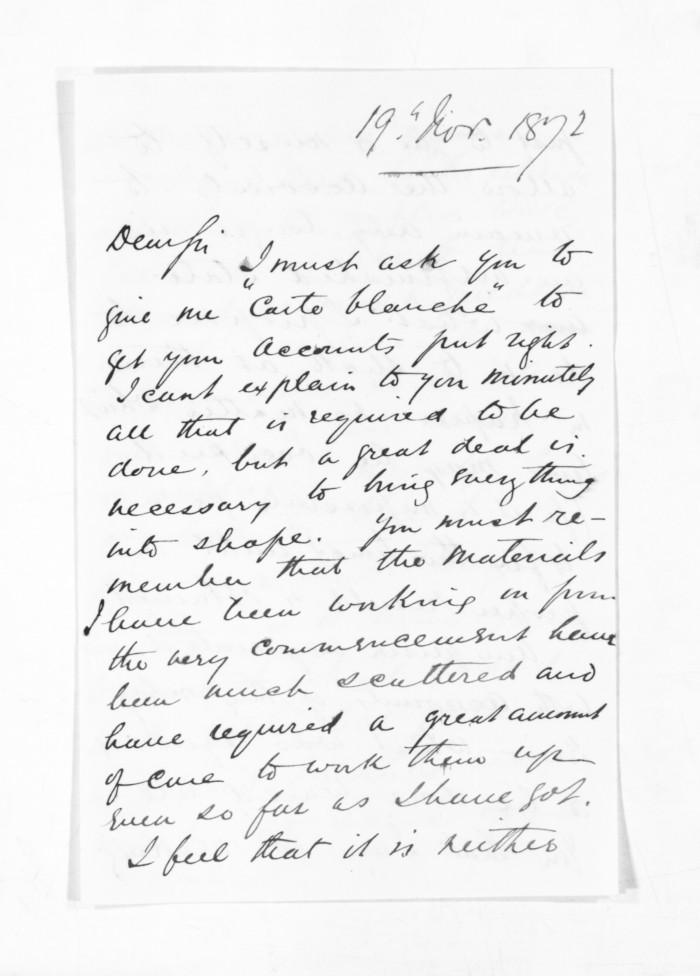 19th Nov. 1872
Dear Sir
I must ask you to
give me "Carte blanche" to
get your accounts put right.
I cant explain to you minutely
all that is required to be
done, but a great deal is
necessary to bring everything
into shape. You must re-
member that the materials
I have been working on from
the very commencement have
been much scattered and
have required a great amount
of care to work them up
even so far as I have got.
I feel that it is neither